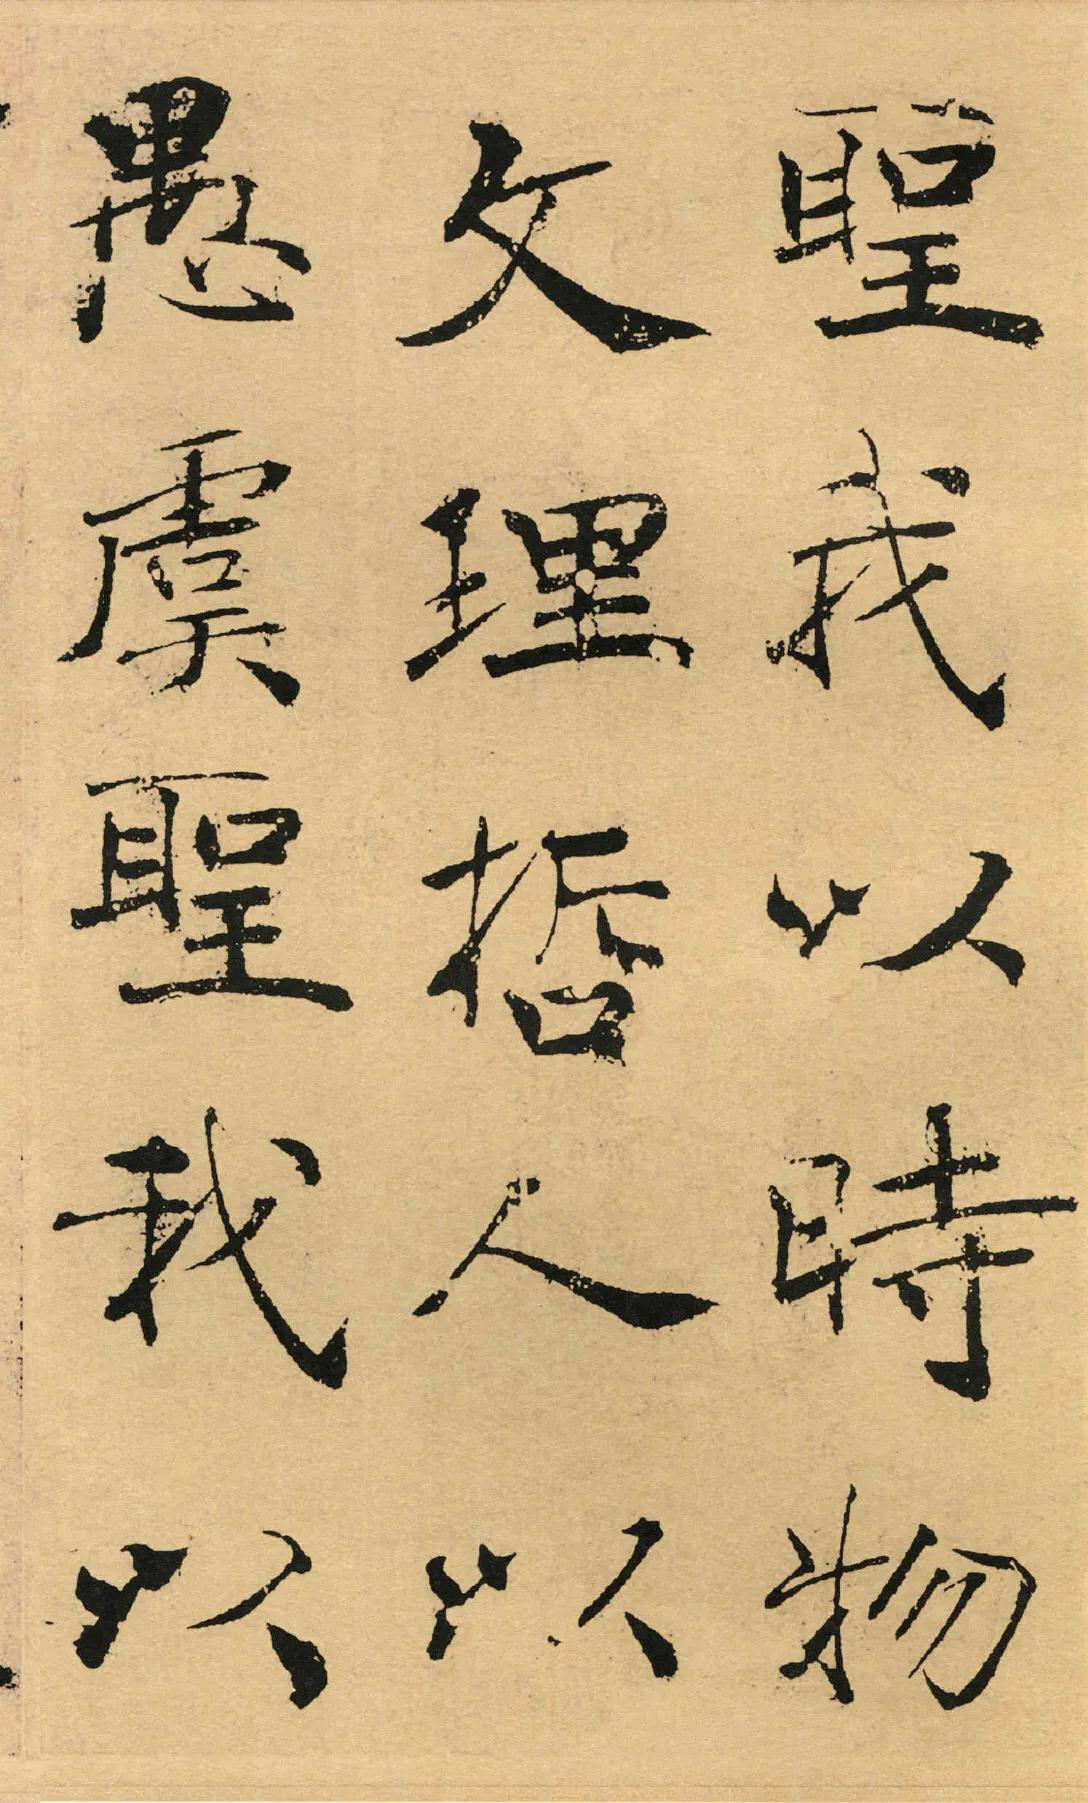 聖我以時物
文理哲人以
愚虞聖我以